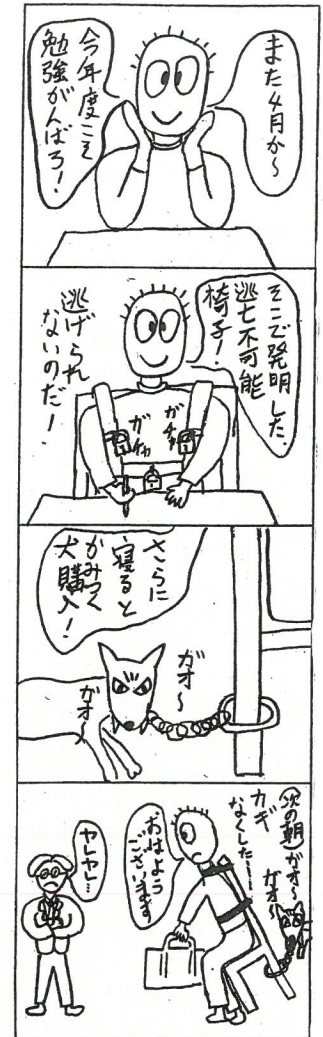 また4月から〜
今年度こそ
勉強がんばろ!
そこで発明した、
逃亡不可能
椅子!
ガチャ
ガチャ
逃げられ
ないのだ!
さらに
寝ると
かみつく
犬購入!
ガオ〜
ガオ〜
(次の朝)
ガオ〜
ガオ〜
カギ
なくした…
おはよう
ございます
ヤレヤレ…